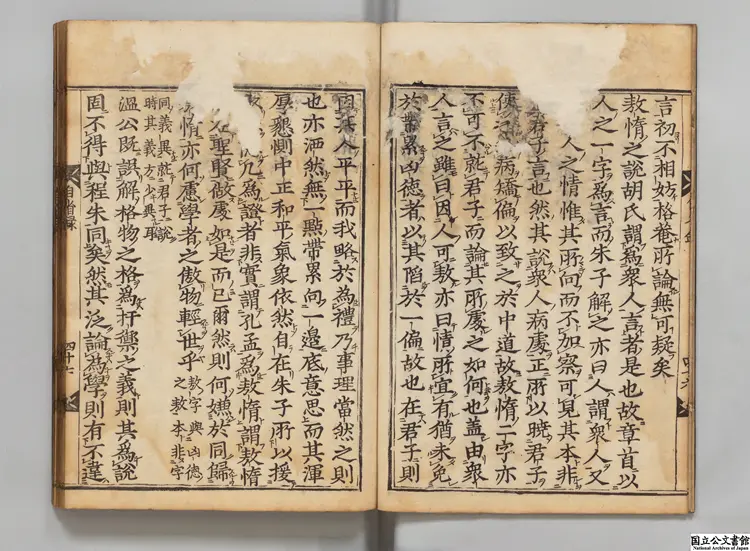 言初不相妨格菴所論無可疑矣
敖惰之說胡氏謂爲衆人言者是也故章首以
人之一字爲言而朱子解之亦曰人謂衆人又
人之情惟其所向而不加察可見其本非
君子言也然其訟衆人病處正所以曉君子
使 病矯偏以致之於中道故敖惰二字亦
不可不就君子而論其所處之如何也蓋由衆
人言之雖曰因人可敖亦曰情所宜有猶未免
於帶累凶德者以其陷於一偏故也在君子則
因其人平平而我略於爲禮乃事理當然之則
也亦洒然無一點帶累向一邊底意思而其渾
厚懇惻中正和平氣象依然自在朱子所以援
爲證者非實謂孔孟爲敖惰謂敖惰
在聖賢做處如是而已爾然則何嫌於同歸
惰亦何慮學者之傲物輕世乎
敖字與凶德
之敖本非字
同義異就君子說
時其義方少異耳
溫公旣誤解格物之格爲扞禦之義則其爲說
固不得與程朱同矣然其泛論爲學則有不違
自省錄
四十七
国立公文書館
National Archives of Japan